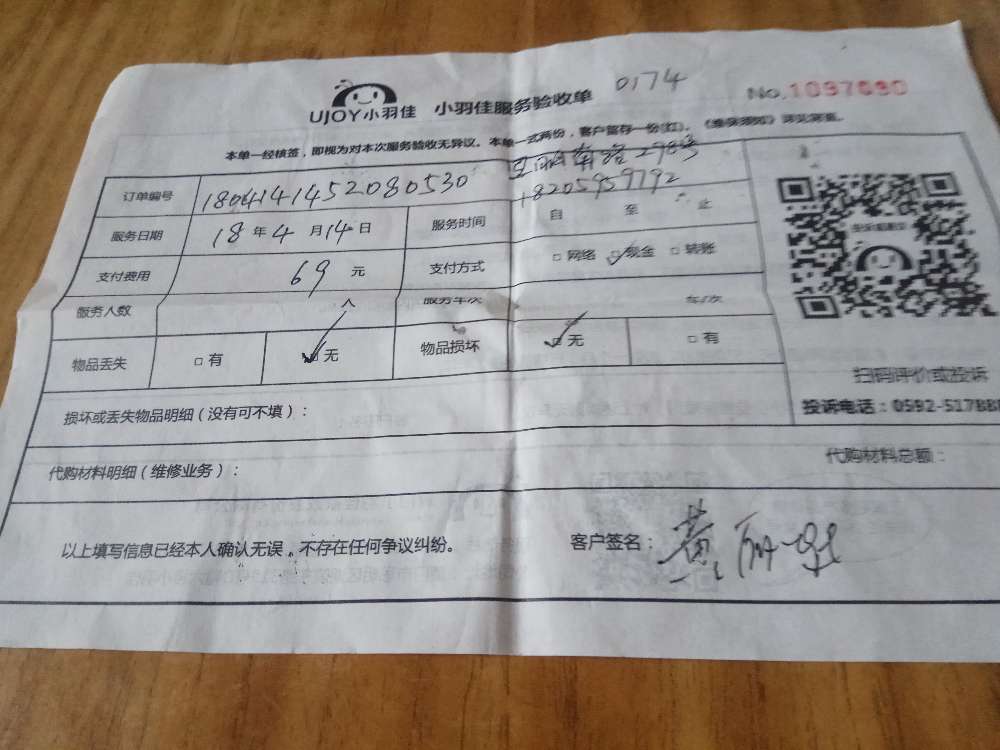 UJOY小羽佳 小羽佳服务验收单 0174 No.1097690
本单一经核签，即视为对本次服务验收无异议。本单一式两份，客户留存一份(红)。《售保须知》详见背面。
南路298号
订单编号 1804141452080530 18205959792
服务日期 18年4月14日 服务时间 自 至 止
支付费用 69元 支付方式 □网络 □现金 □转账
服务人数 人 服务车次 车/次
物品丢失 □有 □无 物品损坏 □无 □有
扫码评价或投诉
损坏或丢失物品明细（没有可不填）： 投诉电话：0592-517888
代购材料明细（维修业务）： 代购材料总额：
以上填写信息已经本人确认无误，不存在任何争议纠纷。 客户签名： 黄